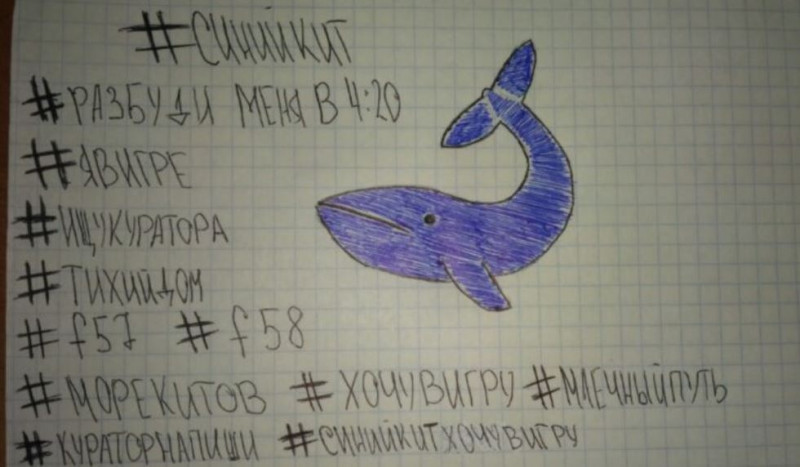 #СИНИЙКИТ
#РАЗБУДИ МЕНЯ В 4:20
#ЯВИГРЕ
#ИЩУКУРАТОРА
#ТИХИЙДОМ
#f57 #f58
#МОРЕКИТОВ #ХОЧУВИГРУ #МЛЕЧНЫЙПУТЬ
#КУРАТОРНАПИШИ #СИНИЙКИТХОЧУВИГРУ